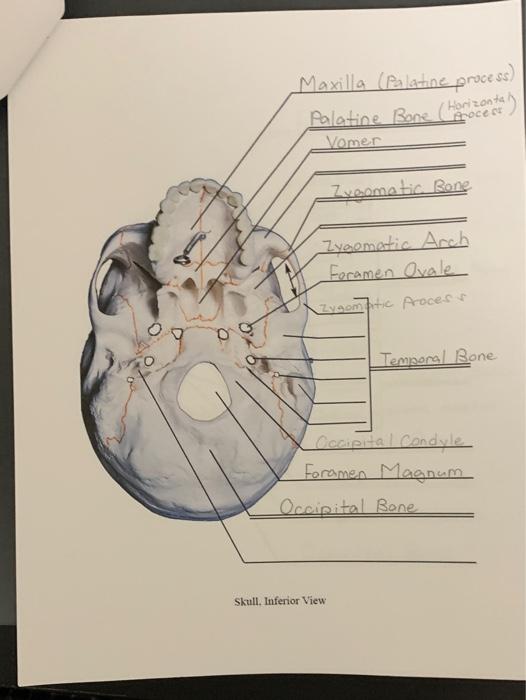 Maxilla (Palatine process)
Palatine Bone (Horizontal
Process)
Vomer
Zygomatic Bone
Zygomatic Arch
Foramen Ovale
Zygomatic Process
Temporal Bone
Occipital Condyle
Foramen Magnum
Occipital Bone
Skull, Inferior View